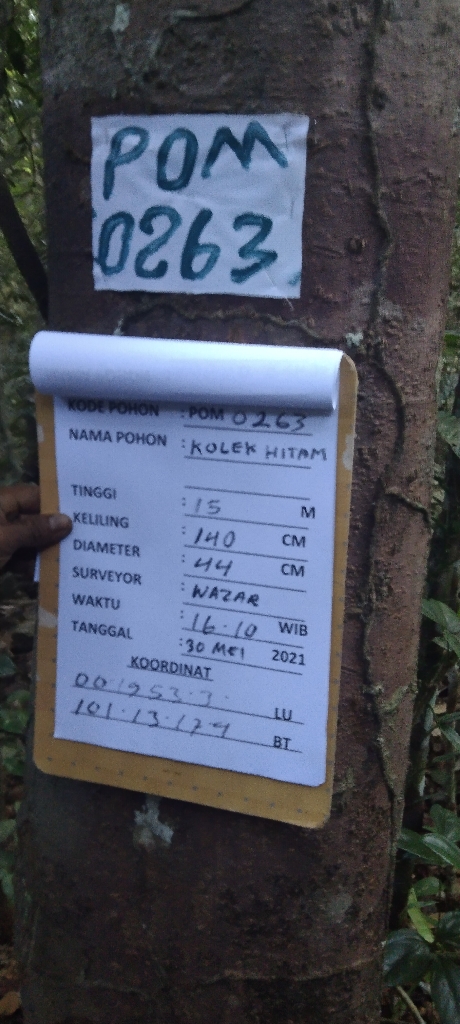 POM
0263
KODE POHON : POM 0263
NAMA POHON : KOLEK HITAM
TINGGI : 15 M
KELILING : 140 CM
DIAMETER : 44 CM
SURVEYOR : WAZAR
WAKTU : 16.10 WIB
TANGGAL : 30 MEI 2021
KOORDINAT
00.1953.3. LU
101.13.174 BT